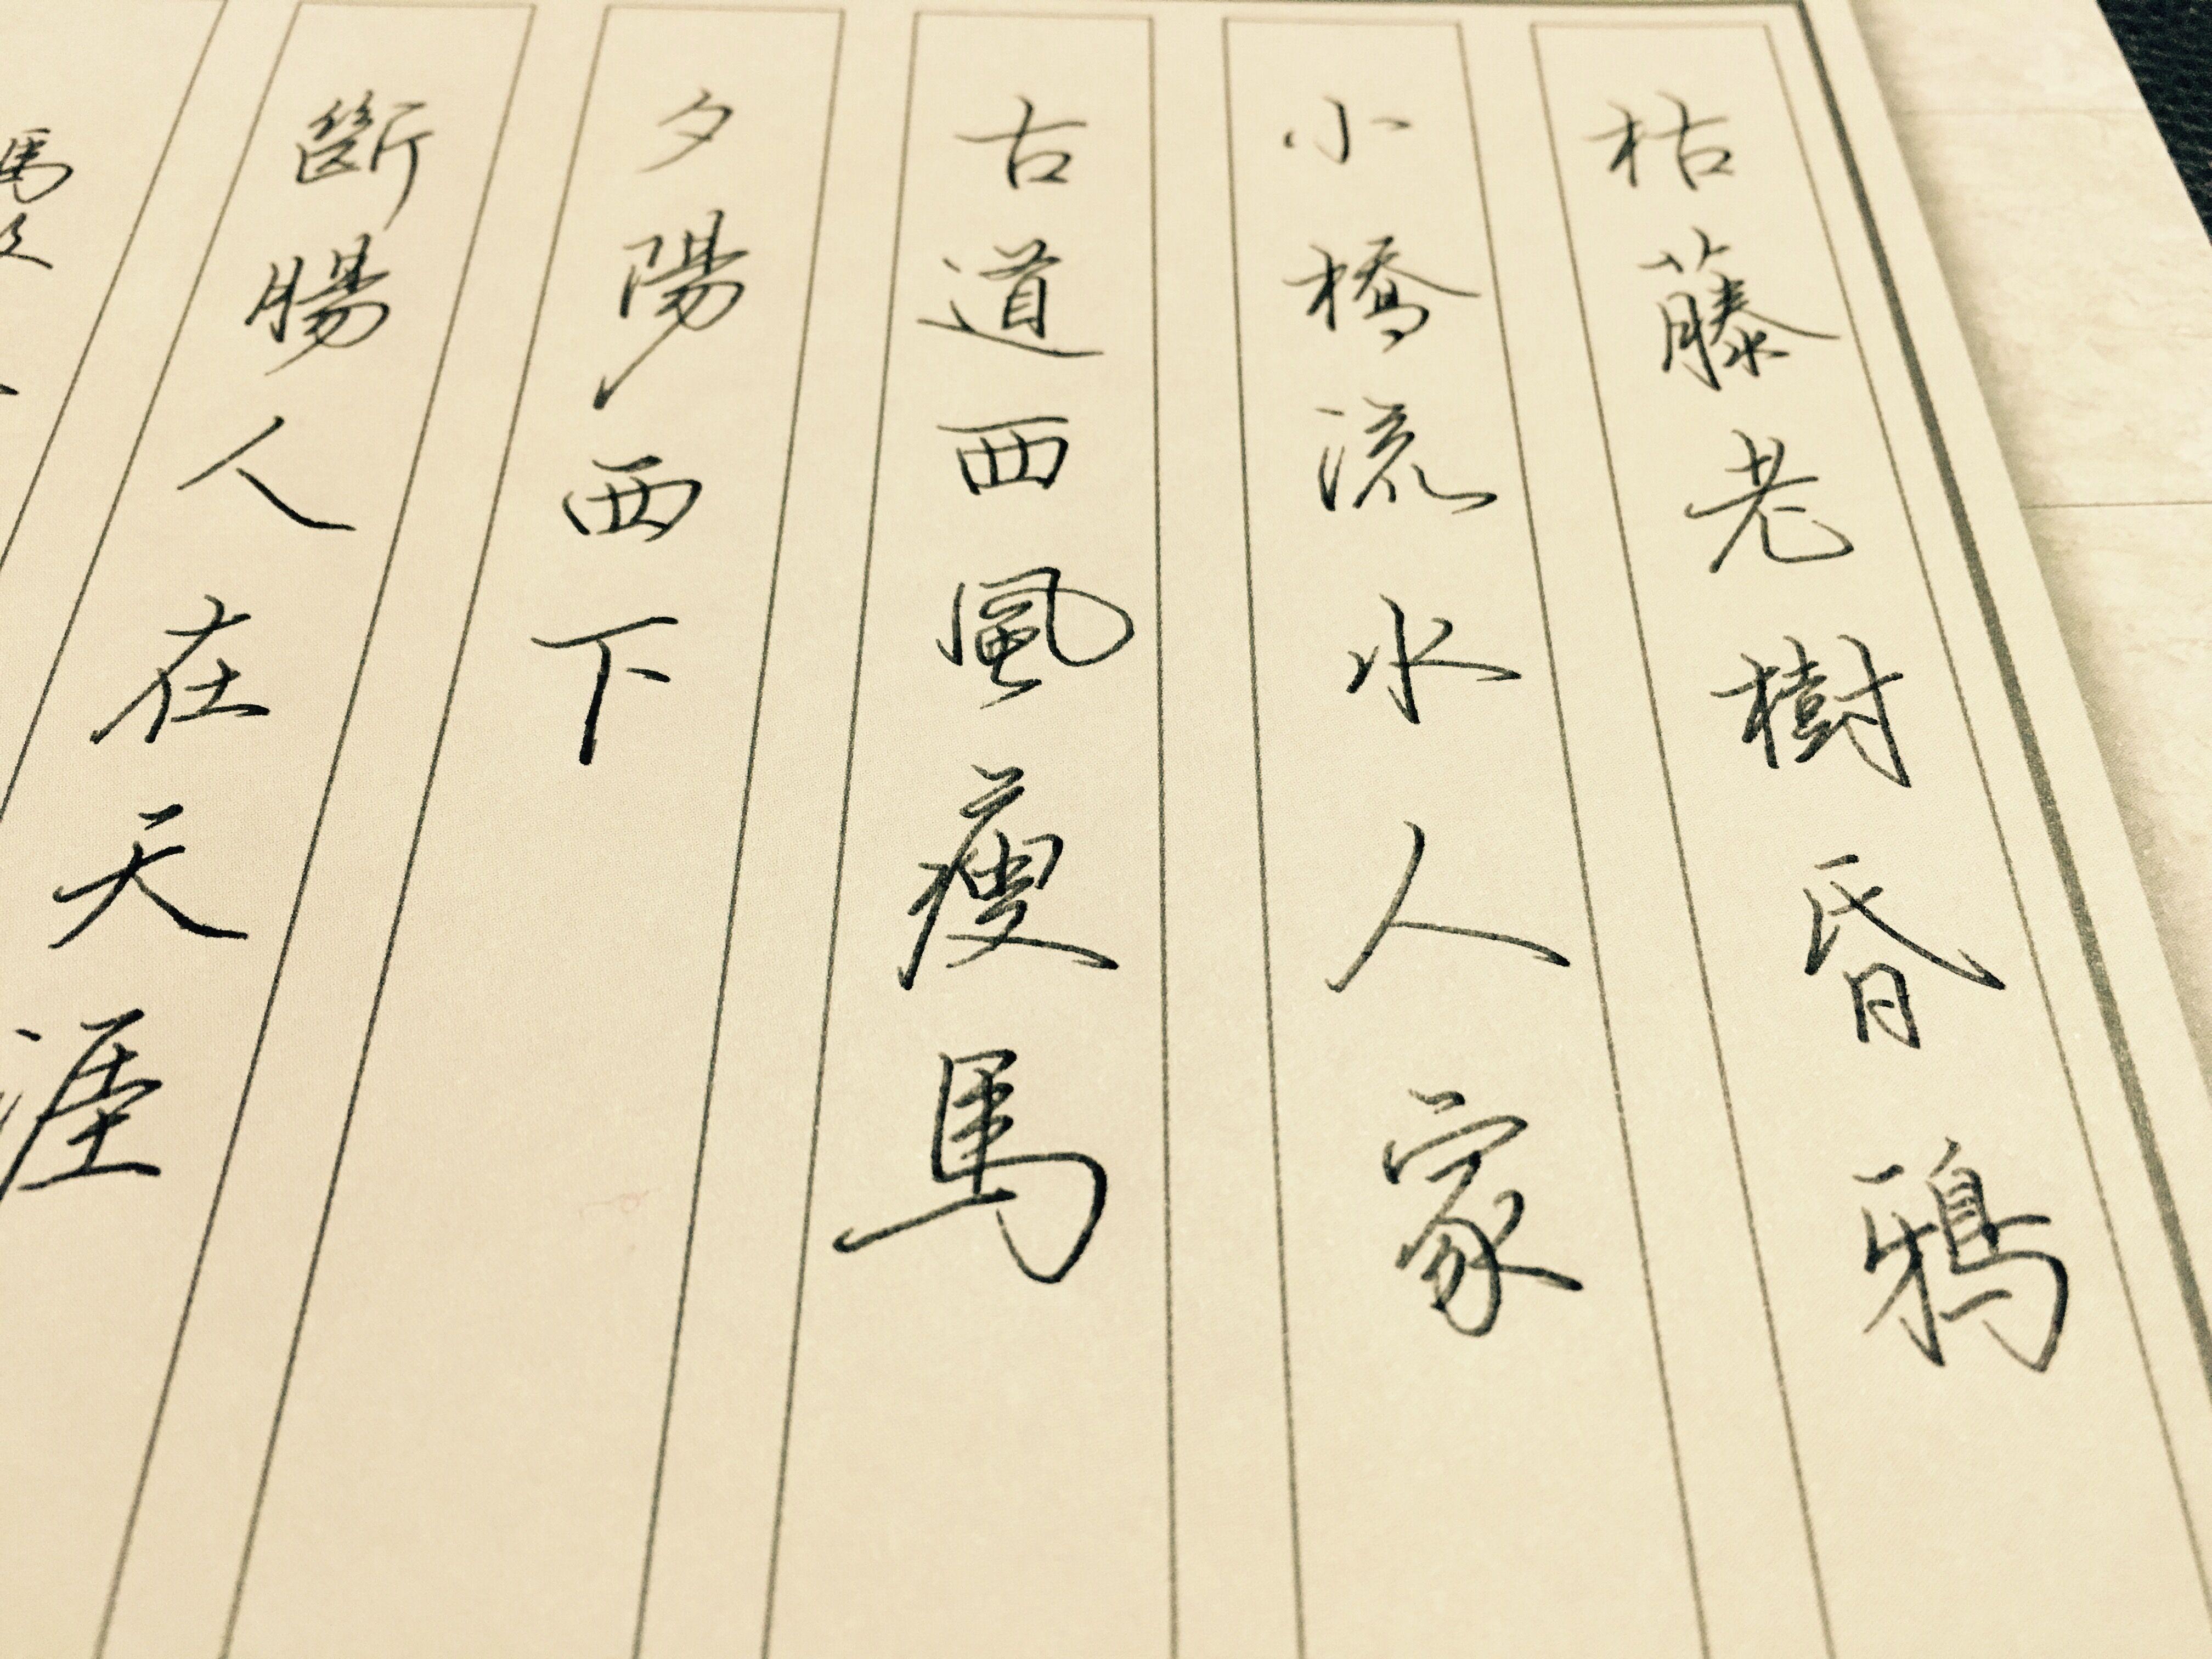 枯藤老樹昏鴉
小橋流水人家
古道西風瘦馬
夕陽西下
斷腸人在天涯
馬致